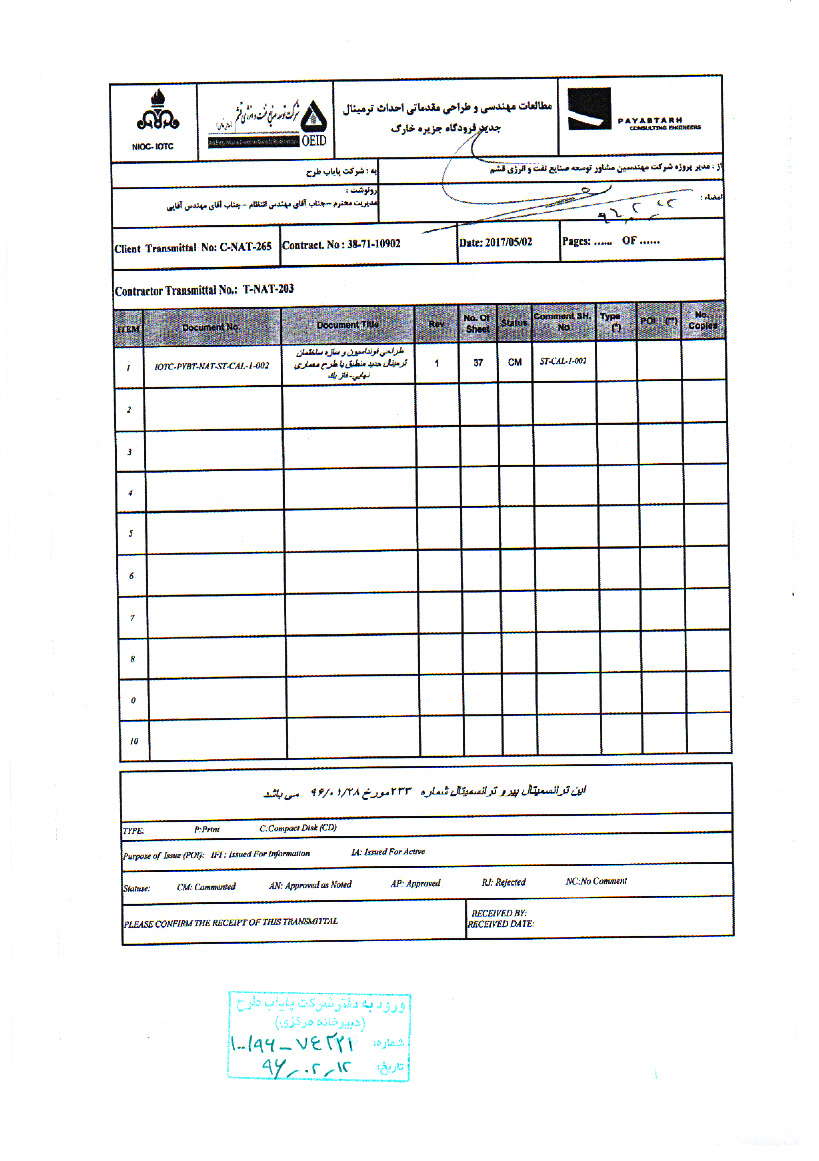 NIOC- IOTC
OEID
مطالعات مهندسی و طراحی مقدماتی احداث ترمینال
جدید فرودگاه جزیره خارگ
PAYABTARH
CONSULTING ENGINEERS
از : مدیر پروژه شرکت مهندسین مشاور توسعه صنایع نفت و انرژی قشم
به : شرکت پایاب طرح
امضاء :
رونوشت :
مدیریت محترم – جناب آقای مهندس انتظام – جناب آقای مهندس آقایی
Client Transmittal No: C-NAT-265
Contract. No : 38-71-10902
Date: 2017/05/02
Pages: ...... OF ......
Contractor Transmittal No.: T-NAT-203
ITEM Document No Document Title Rev No. Of Sheet Status Comment SH. No Type (*) POI (**) No. Copies
1 IOTC-PYBT-NAT-ST-CAL-1-002 طراحی فونداسیون و سازه ساختمان ترمینال جدید منطبق با طرح معماری نهایی-فاز یک 1 37 CM ST-CAL-1-002
2
3
4
5
6
7
8
9
10
این ترانسمیتال پیرو ترانسمیتال شماره ۲۳۳ مورخ ۹۶/۰۱/۲۸ می باشد
TYPE: P:Print C:Compact Disk (CD)
Purpose of Issue (POI): IFI : Issued For Information IA: Issued For Active
Statuse: CM: Commented AN: Approved as Noted AP: Approved RJ: Rejected NC:No Comment
PLEASE CONFIRM THE RECEIPT OF THIS TRANSMITTAL
RECEIVED BY:
RECEIVED DATE:
ورود به دفتر شرکت پایاب طرح
(دبیرخانه مرکزی)
شماره:
تاریخ: ۹۶/۰۲/۱۲